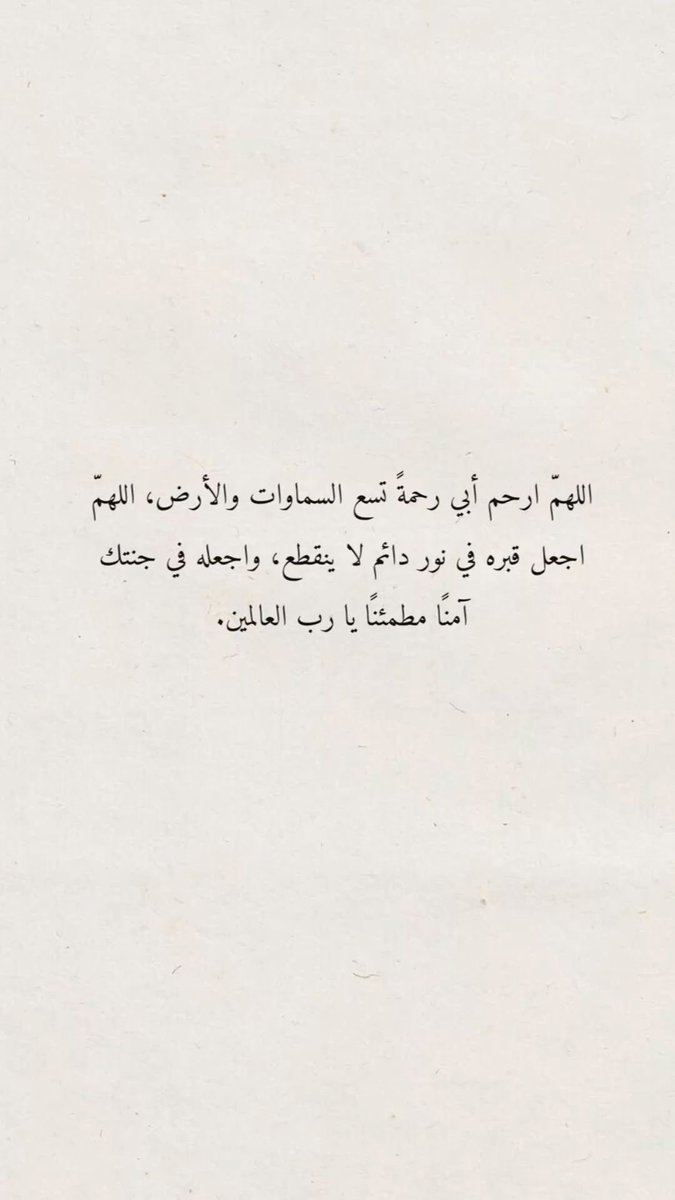 اللهمّ ارحم أبي رحمةً تسع السماوات والأرض، اللهمّ
اجعل قبره في نور دائم لا ينقطع، واجعله في جنتك
آمنًا مطمئنًا يا رب العالمين.